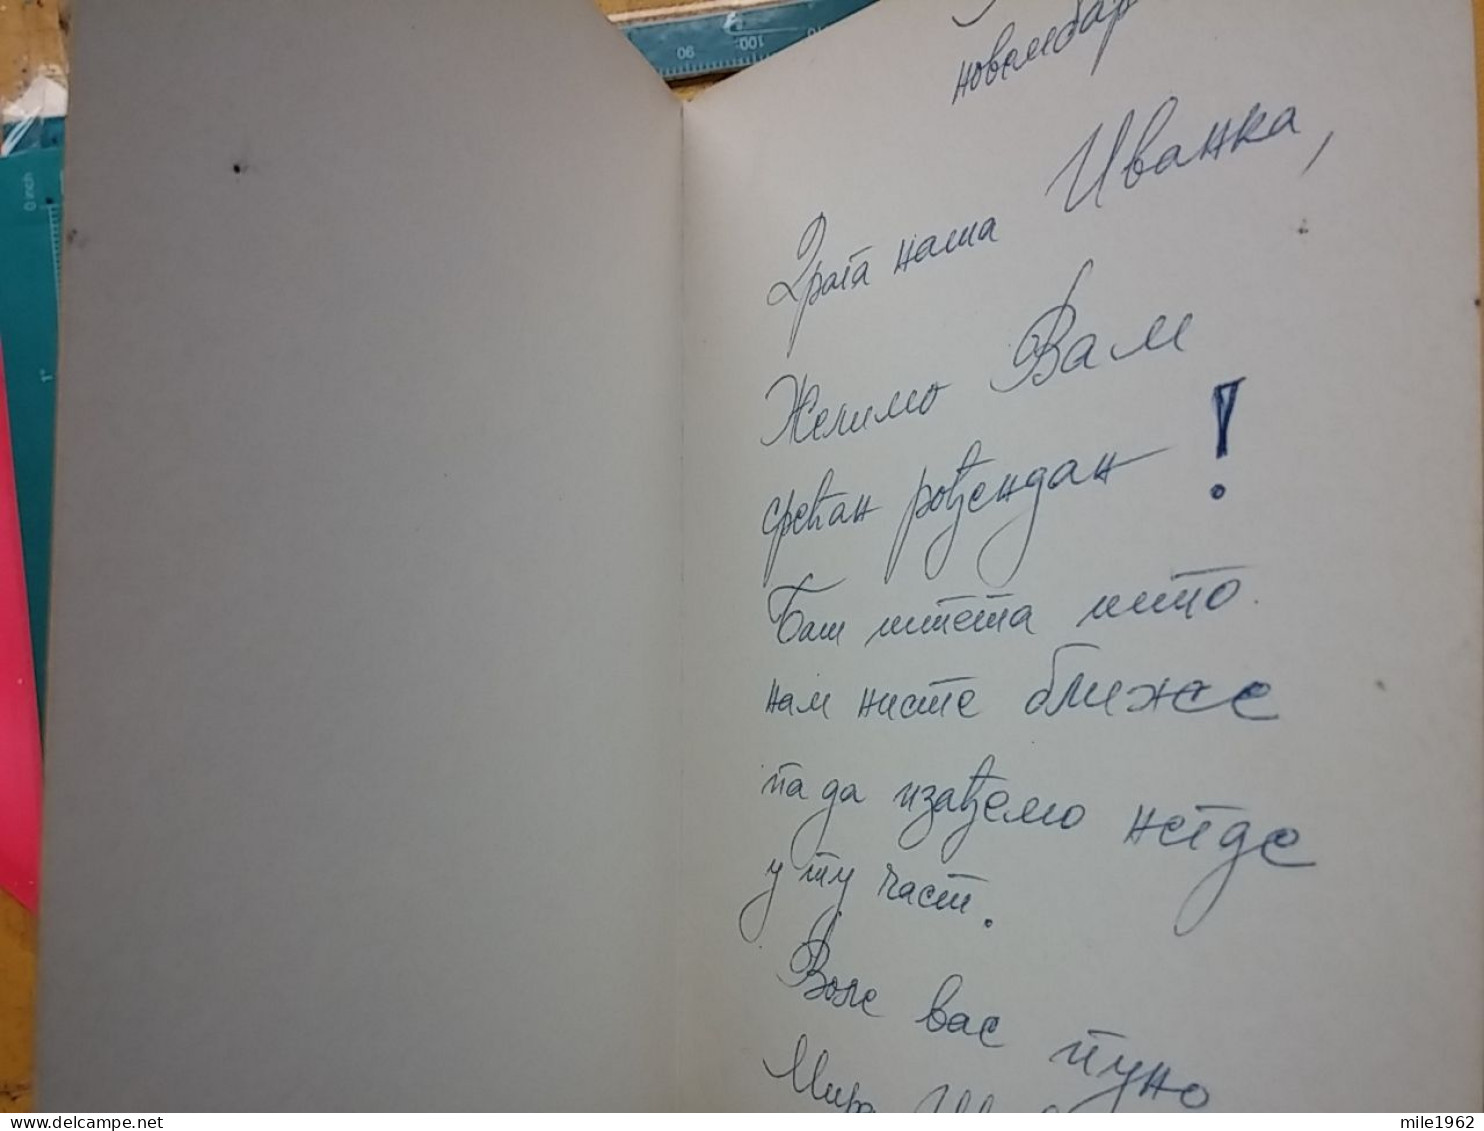 90 100
0 inch
1"
новембар
Драга наша Иванка,
Желимо Вам
срећан рођендан !
Баш штета што
нам нисте ближе
па да изађемо негде
у ту част.
Воле вас пуно
Мира
mile1962